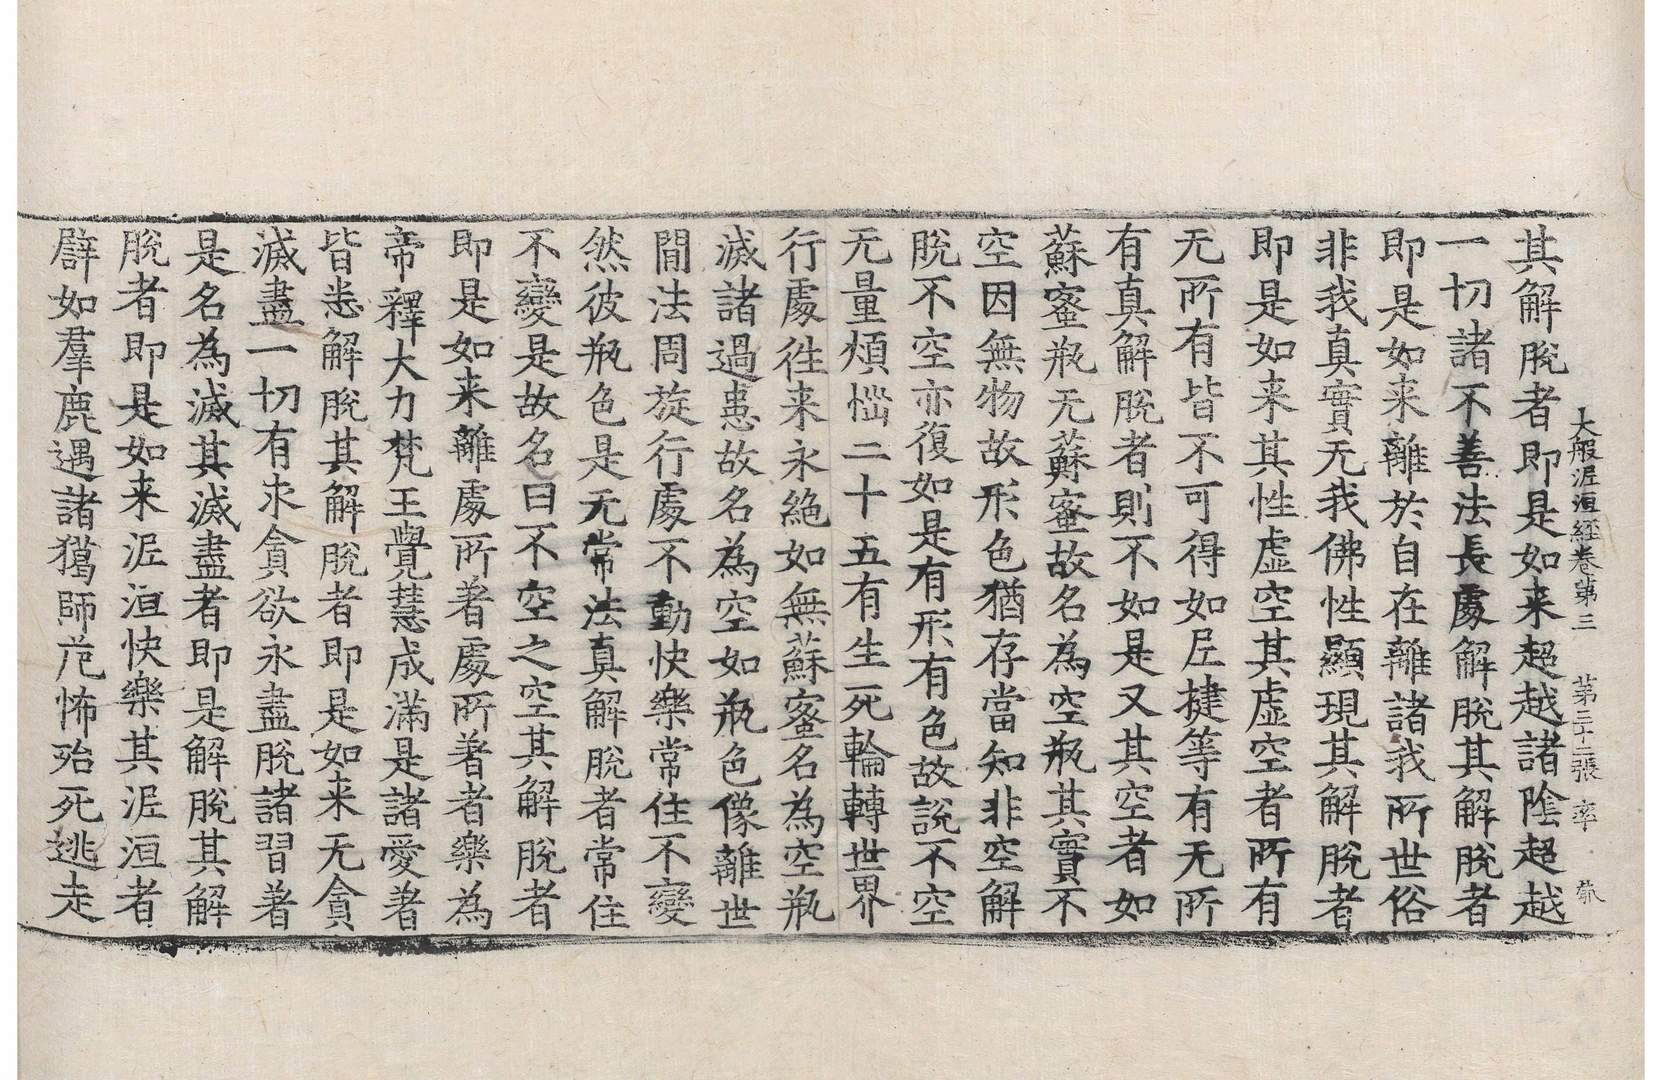 大般泥洹經卷第三 第二十二張 率
其解脫者即是如来超越諸陰超越
一切諸不善法長處解脫其解脫者
即是如来離於自在離諸我所世俗
非我真實无我佛性顯現其解脫者
即是如来其性虛空其虛空者所有
无所有皆不可得如尼揵等有无所
有真解脫者則不如是又其空者如
蘇蜜瓶无蘇蜜故名為空瓶其實不
空因無物故形色猶存當知非空解
脫不空亦復如是有形有色故說不空
无量煩惱二十五有生死輪轉世界
行處徃来永絶如無蘇蜜名為空瓶
滅諸過患故名為空如瓶色像離世
間法周旋行處不動快樂常住不變
然彼瓶色是无常法真解脫者常住
不變是故名曰不空之空其解脫者
即是如来離處所著處所著者樂為
帝釋大力梵王覺慧成滿是諸愛著
皆悉解脫其解脫者即是如来无貪
滅盡一切有求貪欲永盡脫諸習著
是名為滅其滅盡者即是解脫其解
脫者即是如来泥洹快樂其泥洹者
譬如羣鹿遇諸獵師危怖殆死逃走